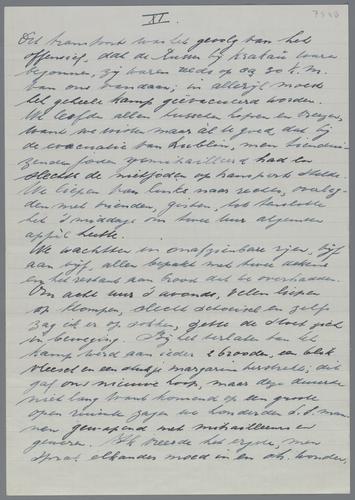 XI.
Dit transport was het gevolg van het
offensief, dat de Russen bij Krakau waren
begonnen, zij waren reeds op 20 k.m.
van ons vandaan; in allerijl moest
het geheele kamp geëvacueerd worden.
We leefden allen tusschen hopen en vreezen,
want we wisten maar al te goed, dat bij
de evacuatie van Lublin, men tiendui-
zenden Joden gemitrailleerd had en
slechts de niet-Joden op transport stelde.
We liepen van links naar rechts, overleg-
den met vrienden, gisten, tot tenslotte
het 's middags om twee uur algemeen
appèl heette.
We wachtten in onafzienbare rijen, vijf
aan vijf, allen bepakt met twee dekens
en het restant aan brood dat we overhadden.
Om acht uur 's avonds, velen liepen
op klompen, slecht schoeisel en zelfs
zag ik er op sokken, zette de stoet zich
in beweging. Bij het verlaten van het
kamp werd aan ieder 2 brooden, een blik
vleesch en een stukje margarine verstrekt; dit
gaf ons nieuwe hoop, maar deze duurde
niet lang want komend op een groote
open ruimte zagen we honderden S.S. man-
nen gewapend met mitrailleurs en
geweren. Elk vreesde het ergste, men
sprak elkander moed in en oh. wonder,